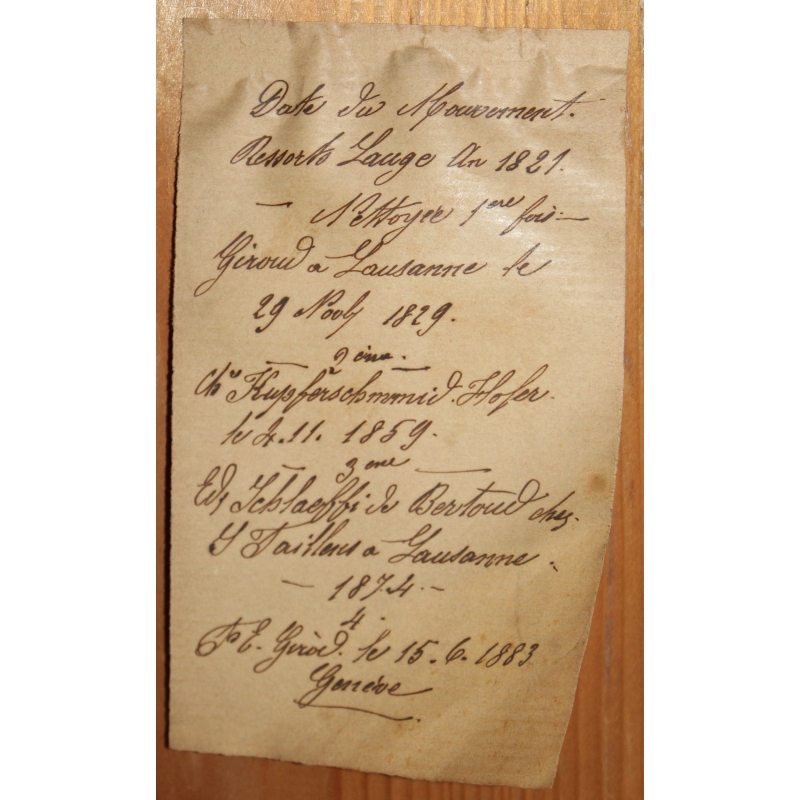 Date du Mouvement.
Ressorts Lauge An 1821.
— Nettoyée 1ere fois —
Giroud a Lausanne le
29 Novb 1829.
2 ème.
Chs Kupferschmmid. Hofer.
le 4.11. 1859.
3 eme
Ed, Schlaeffi de Bertoud chez.
Taillens a Lausanne.
— 1874 —
4.
P E. Giròd. le 15. 6. 1883
Genève.